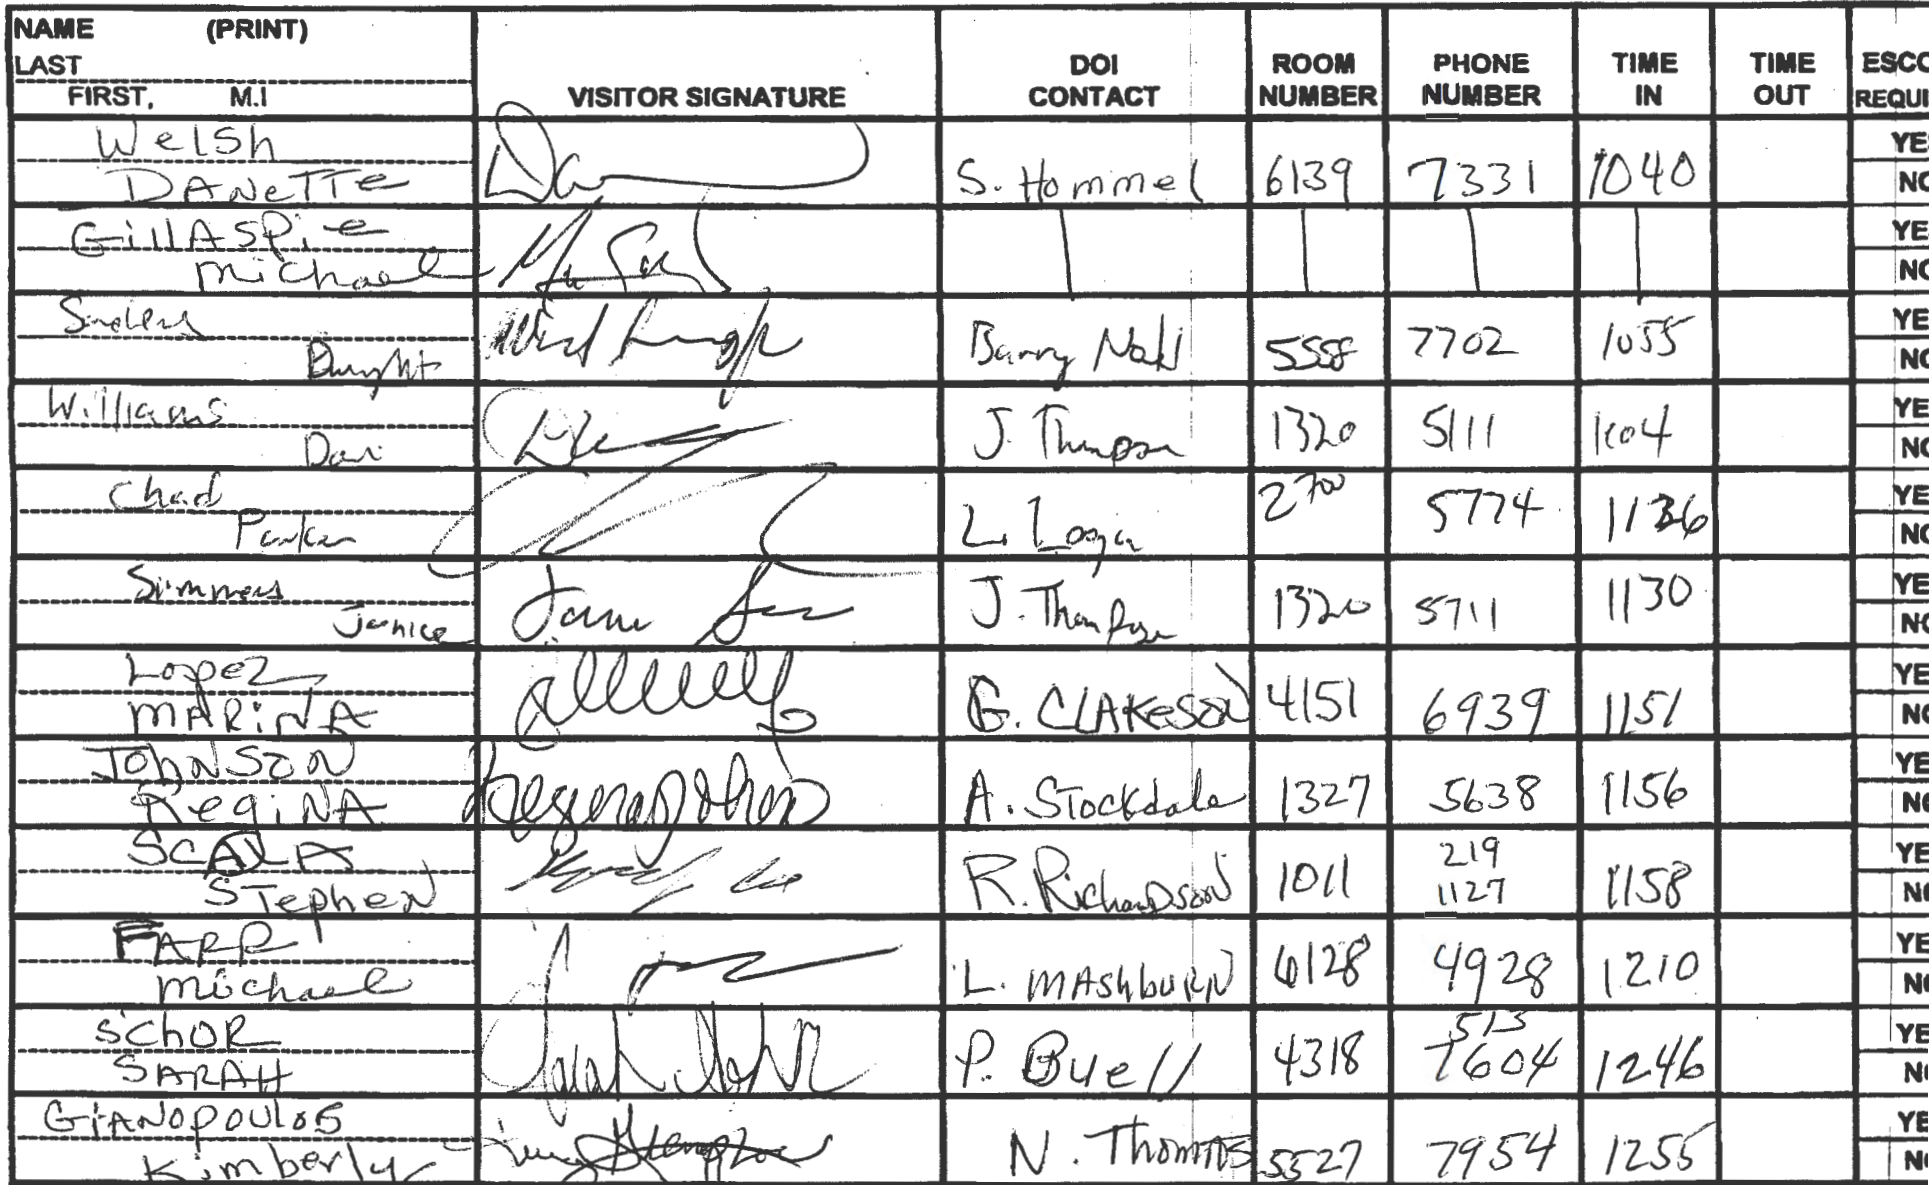 NAME (PRINT)
LAST
FIRST, M.I
VISITOR SIGNATURE
DOI CONTACT
ROOM NUMBER
PHONE NUMBER
TIME IN
TIME OUT
ESCO
REQUI
Welsh
DANeTTe S. Hommel 6139 7331 1040 YE NO
GillASPie
Michael YE NO
Dwight Barry 5558 7702 1055 YE NO
Williams
J. Thompson 1320 5111 1104 YE NO
Chad
Parker L. 2700 5774 YE NO
Simmers
Janice J. Thompson 1320 5711 1130 YE NO
Lopez
MARiNA G. ClAKeSON 4151 6939 1151 YE NO
JOhNSON
RegiNA A. STockdale 1327 5638 1156 YE NO
SCALA
STepheN R. RichaRDsoN 1011 219 1127 1158 YE NO
FARR
Michael L. MAShbuRN 6128 4928 1210 YE NO
SChOR
SARAH P. Buell 4318 513 7604 1246 YE NO
GiANOpoulos
Kimberly N. ThomAS 5527 7954 1255 YE NO